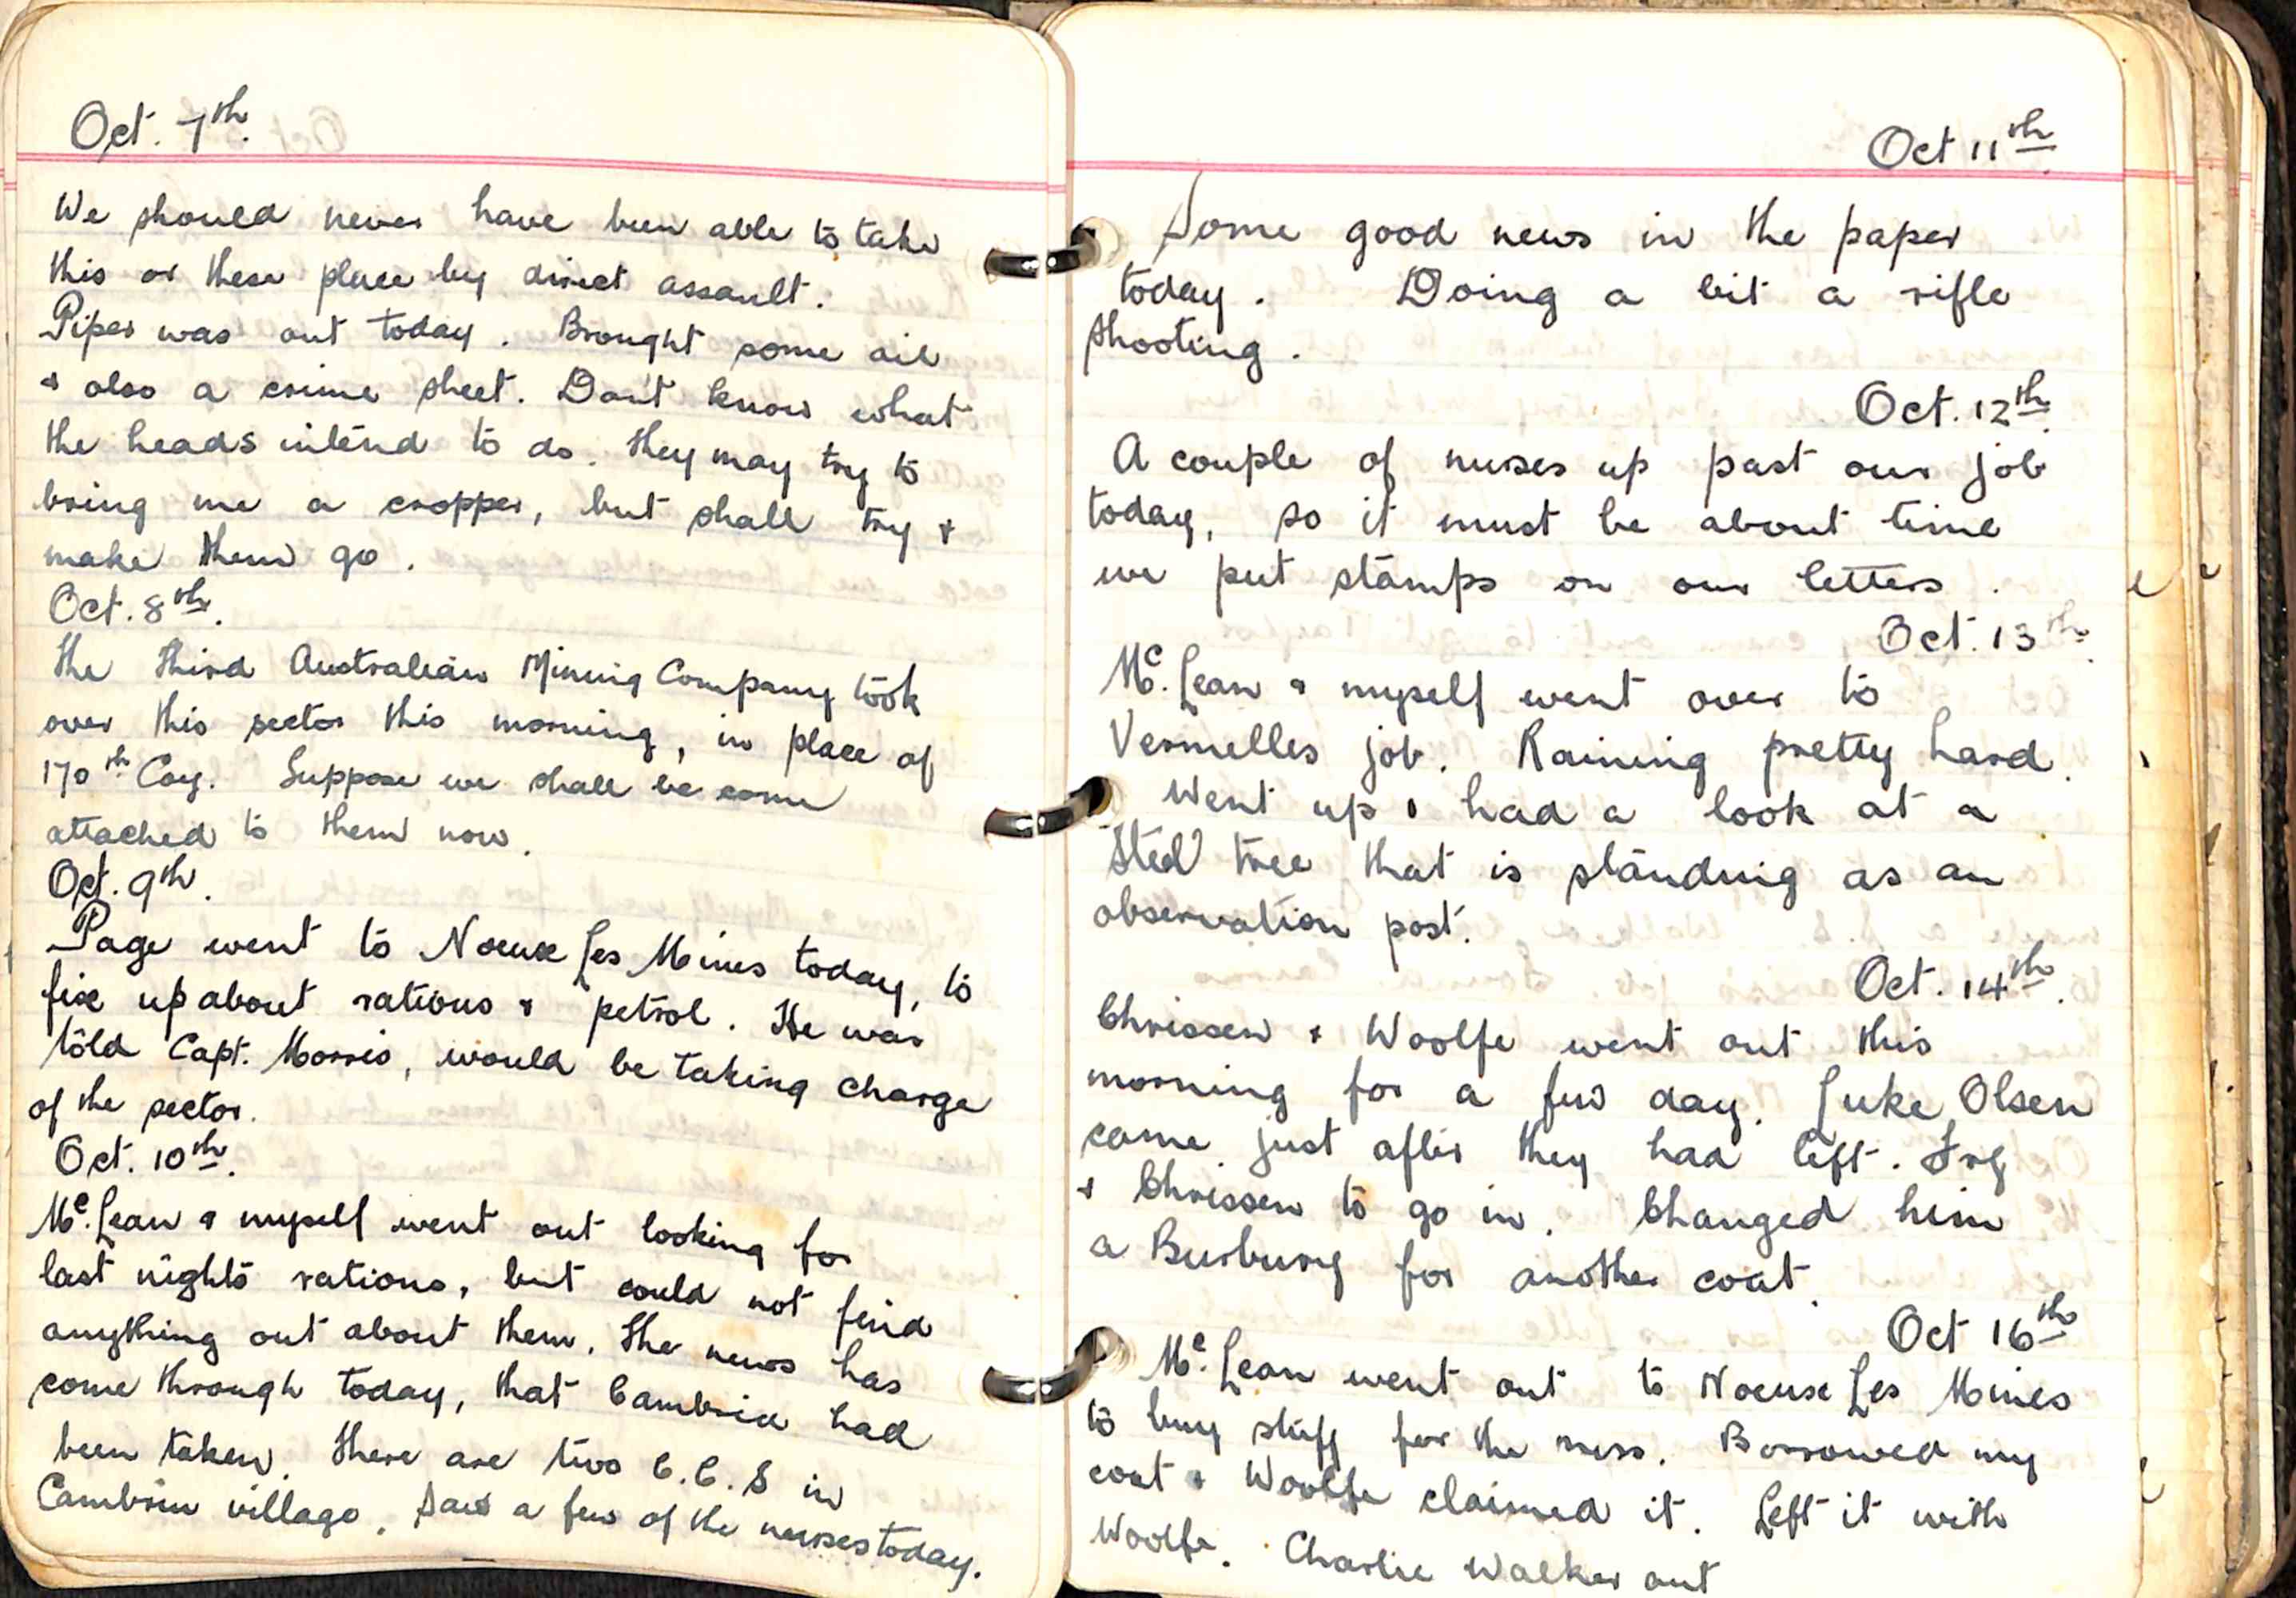 Oct. 7th.
We should never have been able to take
this or these place by direct assault.
Piper was out today. Brought some oil
& also a crime sheet. Don't know what
the heads intend to do. They may try to
bring me a cropper, but shall try &
make them go.
Oct. 8th.
The third Australian Mining Company took
over this sector this morning, in place of
170th Coy. Suppose we shall be come
attached to them now.
Oct. 9th.
Page went to Noeux Les Mines today, to
fix up about rations & petrol. He was
told Capt. Morris, would be taking charge
of the sector.
Oct. 10th.
Mc. Lean & myself went out looking for
last nights rations, but could not find
anything out about them. The news has
come through today, that Cambria had
been taken. There are two C.C.S in
Cambrin village. Saw a few of the nurses today.
Oct 11th.
Some good news in the paper
today. Doing a bit a rifle
shooting.
Oct. 12th.
A couple of nurses up past our job
today, so it must be about time
we put stamps on our letters.
Oct. 13th.
Mc. Lean & myself went over to
Vermelles job. Raining pretty hard.
Went up & had a look at a
Steel tree that is standing as an
observation post.
Oct. 14th.
Chrissen & Woolfe went out this
morning for a few day. Luke Olsen
came just after they had left.
& Chrissen to go in. Changed him
a Burbury for another coat.
Oct 16th
Mc. Lean went out to Noeuse Les Mines
to buy stuff for the mess. Borrowed my
coat & Woolfe claimed it. Left it with
Woolfe. Charlie Walker out